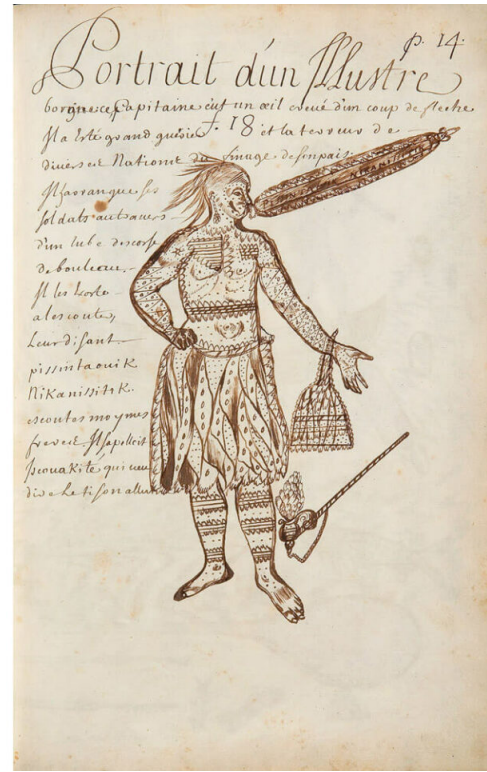 p. 14.
Portrait d'un Illustre
borgne ce Capitaine eut un œil creué d'un coup de fleche
Il a esté grand guerier f. 18 et la terreur de
diuerses Nations du de son païs
Il haranque ses
soldats autrauers
d'un tube descorse
de bouleau.
Il les exorte
a lescouter,
Leur disant
pissintaouik
Nikanissitik.
escoutes moy mes
freres Il sapelloit
Iscouakité, qui veut
dire le tison allumé